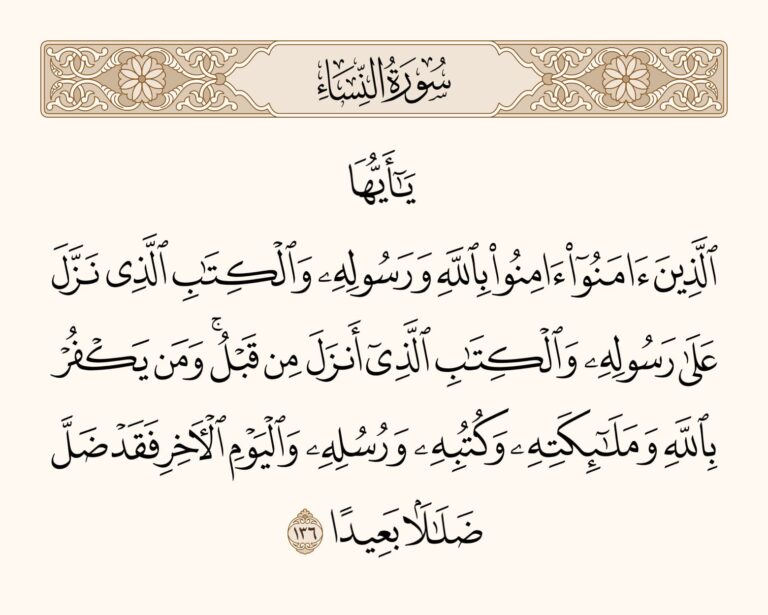 سُورَةُ النِّسَاءِ
يَـٰٓأَيُّهَا
ٱلَّذِينَ ءَامَنُوٓا۟ ءَامِنُوا۟ بِٱللَّهِ وَرَسُولِهِۦ وَٱلْكِتَـٰبِ ٱلَّذِى نَزَّلَ
عَلَىٰ رَسُولِهِۦ وَٱلْكِتَـٰبِ ٱلَّذِىٓ أَنزَلَ مِن قَبْلُ ۚ وَمَن يَكْفُرْ
بِٱللَّهِ وَمَلَـٰٓئِكَتِهِۦ وَكُتُبِهِۦ وَرُسُلِهِۦ وَٱلْيَوْمِ ٱلْـَٔاخِرِ فَقَدْ ضَلَّ
ضَلَـٰلًۢا بَعِيدًا ١٣٦